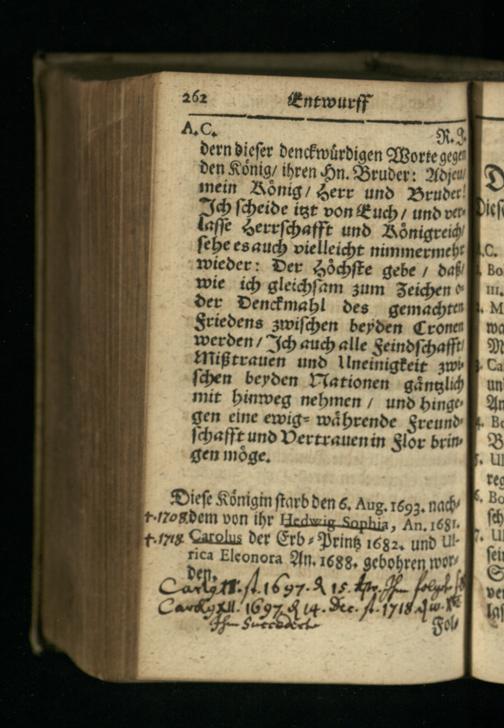 262 Entwurff
A. C. R. J.
dern dieser denckwürdigen Worte gegen
den König/ ihren Hn. Bruder: Adjeu/
mein König/ Herr und Bruder!
Ich scheide itzt von Euch/ und ver-
lasse Herrschafft und Königreich/
sehe es auch vielleicht nimmermehr
wieder: Der Höchste gebe / daß/
wie ich gleichsam zum Zeichen o-
der Denckmahl des gemachten
Friedens zwischen beyden Cronen
werden/ Ich auch alle Feindschafft/
Mißtrauen und Uneinigkeit zwi-
schen beyden Nationen gäntzlich
mit hinweg nehmen / und hinge-
gen eine ewig-währende Freund-
schafft und Vertrauen in Flor brin-
gen möge.
Diese Königin starb den 6. Aug. 1693. nach-
†.1708. dem von ihr Hedwig Sophia, An. 1681.
†.1718. Carolus der Erb-Printz 1682. und Ul-
rica Eleonora An. 1688. gebohren wor-
den.
st. 1697. d 15. Apr. Ihm folgte
XII. 1697. d 14. Dec. st. 1718
Ihm
Fol-